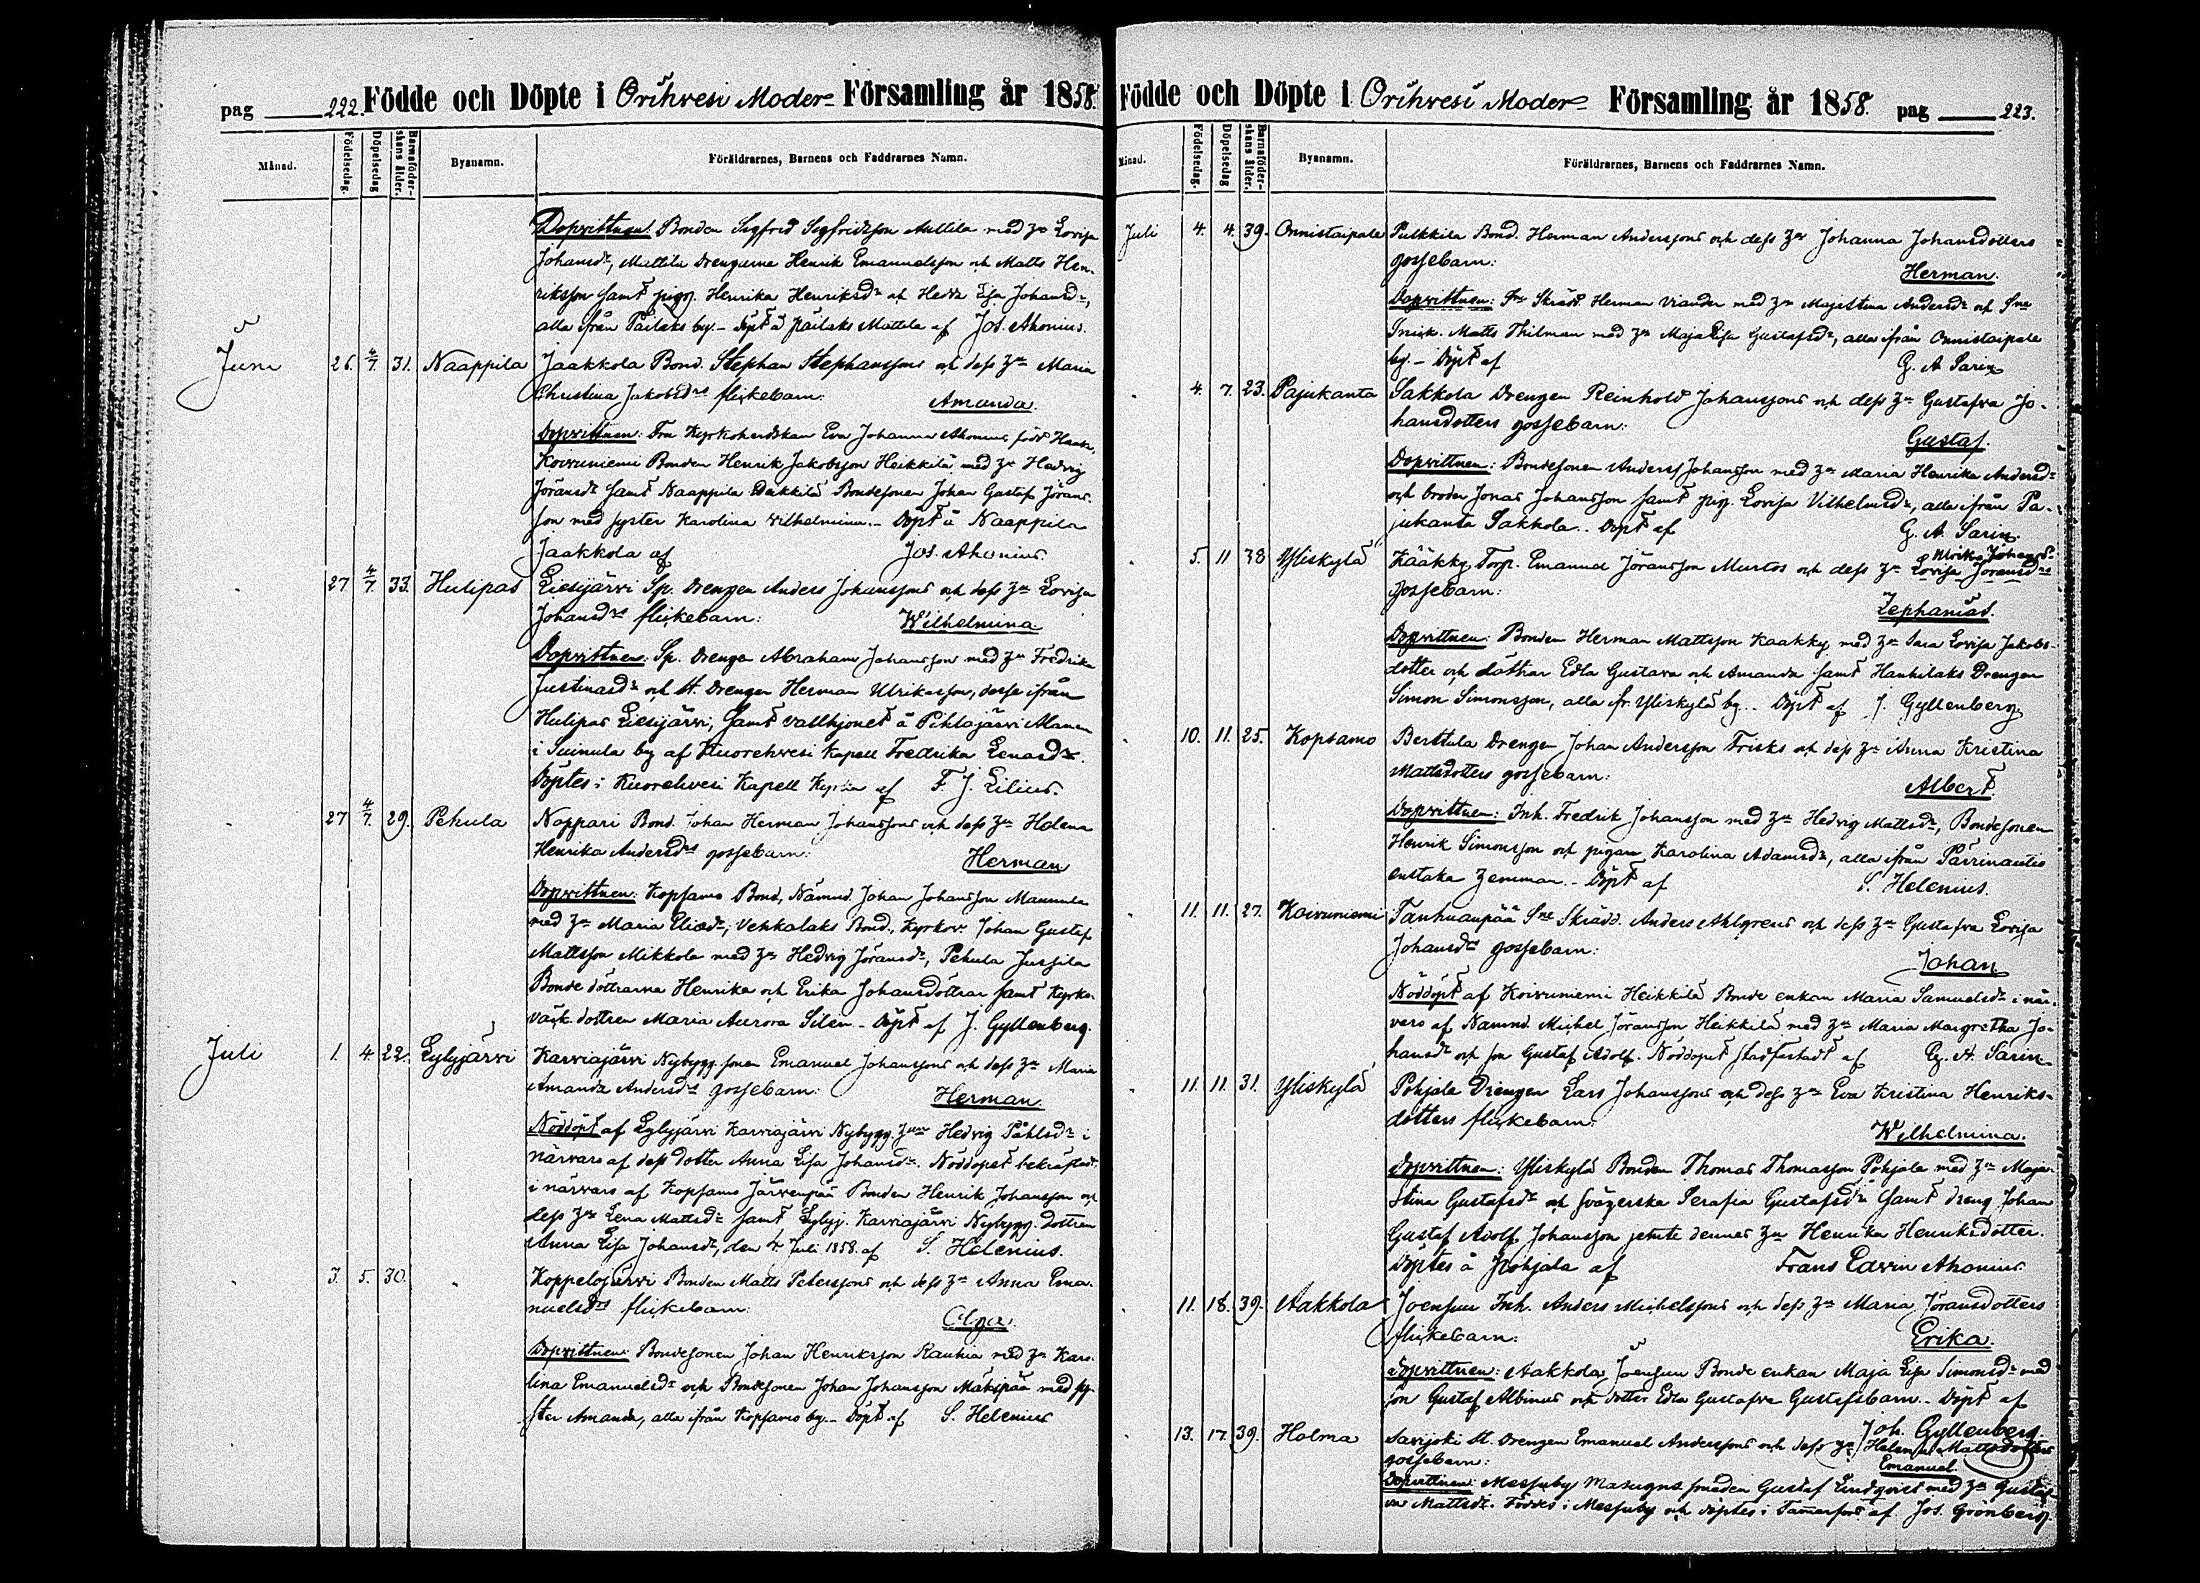 pag 222. Födde och Döpte i Orihvesi Moder- Församling år 1858.
Månad. Födelsedag. Döpelsedag Barnaföder-skans ålder. Byanamn. Föräldrarnes, Barnens och Faddrarnes Namn.
Dopvittnen: Bonden Sigfrid Sigfridsson Mattila med hu Lovisa
Johansdr, Mattila drengarne Henrik Emanuelsson och Matts Hen-
riksson samt pig. Henrika Henriksdr och Hedda Lisa Johansdr,
alla ifrån Päilaks by. - Döpt å Päilaks Mattila af Jos. Ahonius.
Juni 26. 4/7 31. Naappila Jaakkola Bond. Stephan Stephanssons och dess hu Maria
Christina Jakobsdrs flickebarn: Amanda.
Dopvittnen: Fru Kyrkoherdskan Eva Johanna Ahonius född
Koivuniemi Bonden Henrik Jakobsson Heikkilä med hu Hedvig
Göransdr samt Naappila Bondesonen Johan Gustaf Görans-
son med syster Karolina Wilhelmina. - Döpt å Naappila
Jaakkola af Jos. Ahonius.
27 4/7 33. Hulipas Liesijärvi Sp. drengen Anders Johanssons och dess hu Lovisa
Johansdrs flickebarn: Wilhelmina.
Dopvittnen: Sp. drengen Abraham Johansson med hu Fredrika
Justinasdr och St. drengen Herman Ulriksson, desse ifrån
Hulipas Liesijärvi, samt vallhjonet å Pihlajärvi
i Suinula by af Kuorehvesi Kapell Fredrika Lenasdr.
Döptes i Kuorehvesi Kapell Kyrka af F. J. Lilius.
27 4/7. 29. Pehula Noppari Bond. Johan Herman Johanssons och dess hu Helena
Henrika Andersdrs gossebarn: Herman
Dopvittnen: Kopsamo Bond, Nämnd. Johan Johansson Maunula
med hu Maria Eliædr, Vehkalaks Bond., Kyrkov. Johan Gustaf
Mattsson Mikkola med hu Hedvig Göransdr, Pehula Jussila
Bonde döttrarna Henrika och Erika Johansdöttrar samt Kyrko-
väck. dottren Maria Aurora Silen. - Döpt af J. Gyllenberg.
Juli 1. 4. 22. Lylyjärvi Karviajärvi Nybygg. sonen Emanuel Johanssons och dess hu Maria
Amanda Andersdrs gossebarn: Herman.
Nöddöpt af Lylyjärvi Karviajärvi Nybygg. hun Hedvig Påhlsdr i
närvaro af dess dotter Anna Lisa Johansdr. Nöddopet bekräftadt
i närvaro af Kopsamo Järvenpää Bonden Henrik Johansson och
dess hu Lena Mattsdr samt Lylyj. Karviajärvi Nybygg. dottren
Anna Lisa Johansdr, den 4 Juli 1858. af S. Helenius.
3. 5. 30. Koppelojärvi Bonden Matts Peterssons och dess hu Anna Ema-
nuelsdrs flickebarn: Olga.
Dopvittnen: Bondesonen Johan Henriksson Rauhia med hu Karo-
lina Emanuelsdr och Bondesonen Johan Johansson Mäkipää med sy-
ster Amanda, alla ifrån Kopsamo by. - Döpt af S. Helenius
Födde och Döpte i Orihvesi Moder- Församling år 1858. pag 223.
Månad. Födelsedag. Döpelsedag Barnaföder-skans ålder. Byanamn. Föräldrarnes, Barnens och Faddrarnes Namn.
Juli 4. 4. 39. Onnistaipale Pulkkila Bond. Herman Anderssons och dess hu Johanna Johansdotters
gossebarn: Herman.
Dopvittnen: Sne Skrädd. Herman Viander med hu Maja Stina Andersdr och Sne
Snick. Matts Thilman med hu Maja Lisa Gustafsdr, alla ifrån Onnistaipale
by. - Döpt af G. A. Sarin
4. 7. 23. Pajukanta Sakkola Drengen Reinhold Johanssons och dess hu Gustafva Jo-
hansdotters gossebarn: Gustaf.
Dopvittnen: Bondesonen Anders Johansson med hu Maria Henrika Andersdr
och broder Jonas Johansson samt pig. Lovisa Vilhelmsdr, alla ifrån Pa-
jukanta Sakkola. - Döpt af G. A. Sarin.
Ulrika Johansdr
5. 11 38 Yliskylä Kääkky Torp. Emanuel Göransson Murtos och dess hu Lovisa Göransdrs
gossebarn: Zephanias.
Dopvittnen: Bonden Herman Mattsson Kaakky med hu Sara Lovisa Jakobs-
dotter och döttrar Edla Gustava och Amanda samt Hanhilaks Drengen
Simon Simonsson, alla fr. Yliskylä by. - Döpt af J. Gyllenberg
10. 11. 25. Kopsamo Berttula Drengen Johan Andersson Frisks och dess hu Anna Kristina
Mattsdotters gossebarn: Albert.
Dopvittnen: Inh. Fredrik Johansson med hu Hedvig Mattsdr, Bondesonen
Henrik Simonsson och pigan Karolina Adamsdr, alla ifrån Pärrinautio
enstaka hemman. - Döpt af S. Helenius.
11. 11. 27. Koivuniemi Tanhuanpää Sne Skrädd. Anders Ahlgrens och dess hu Gustafva Lovisa
Johansdrs gossebarn: Johan
Nöddöpt af Koivuniemi Heikkilä Bonde enkan Maria Samuelsdr i när-
varo af Nämnd. Michel Göransson Heikkilä med hu Maria Margretha Jo-
hansdr och son Gustaf Adolf. Nöddopet stadfästadt af G. A. Sarin
11. 11. 31. Yliskylä Pohjala Drengen Lars Johanssons och dess hu Eva Kristina Henriks-
dotters flickebarn: Wilhelmina.
Dopvittnen: Yliskylä Bonden Thomas Thomasson Pohjala med hu Maja
Stina Gustafsdr och svägerska Serafia Gustafsdr samt dreng Johan
Gustaf Adolf Johansson jemte dennes hu Henrika Henriksdotter.
Döptes å Pohjala af Frans Edvin Ahonius.
11. 18. 39. Aakkola Joensuu Inh. Anders Michelssons och dess hu Maria Göransdotters
flickebarn: Erika.
Dopvittnen: Aakkola Joensuu Bonde enkan Maja Lisa Simonsdr med
son Gustaf Albinus och dotter Edla Gustafva Gustafsbarn. - Döpt af
Joh. Gyllenberg.
13. 17. 39. Holma Savijoki St. drengen Emanuel Anderssons och dess hu Helena Mattsdotters
gossebarn: Emanuel
Dopvittnen: Messuby Masugns smeden Gustaf Lindqvist med hu Gustaf-
va Mattsdr. Föddes i Messuby och döptes i Tammerfors af Jos. Grönberg.